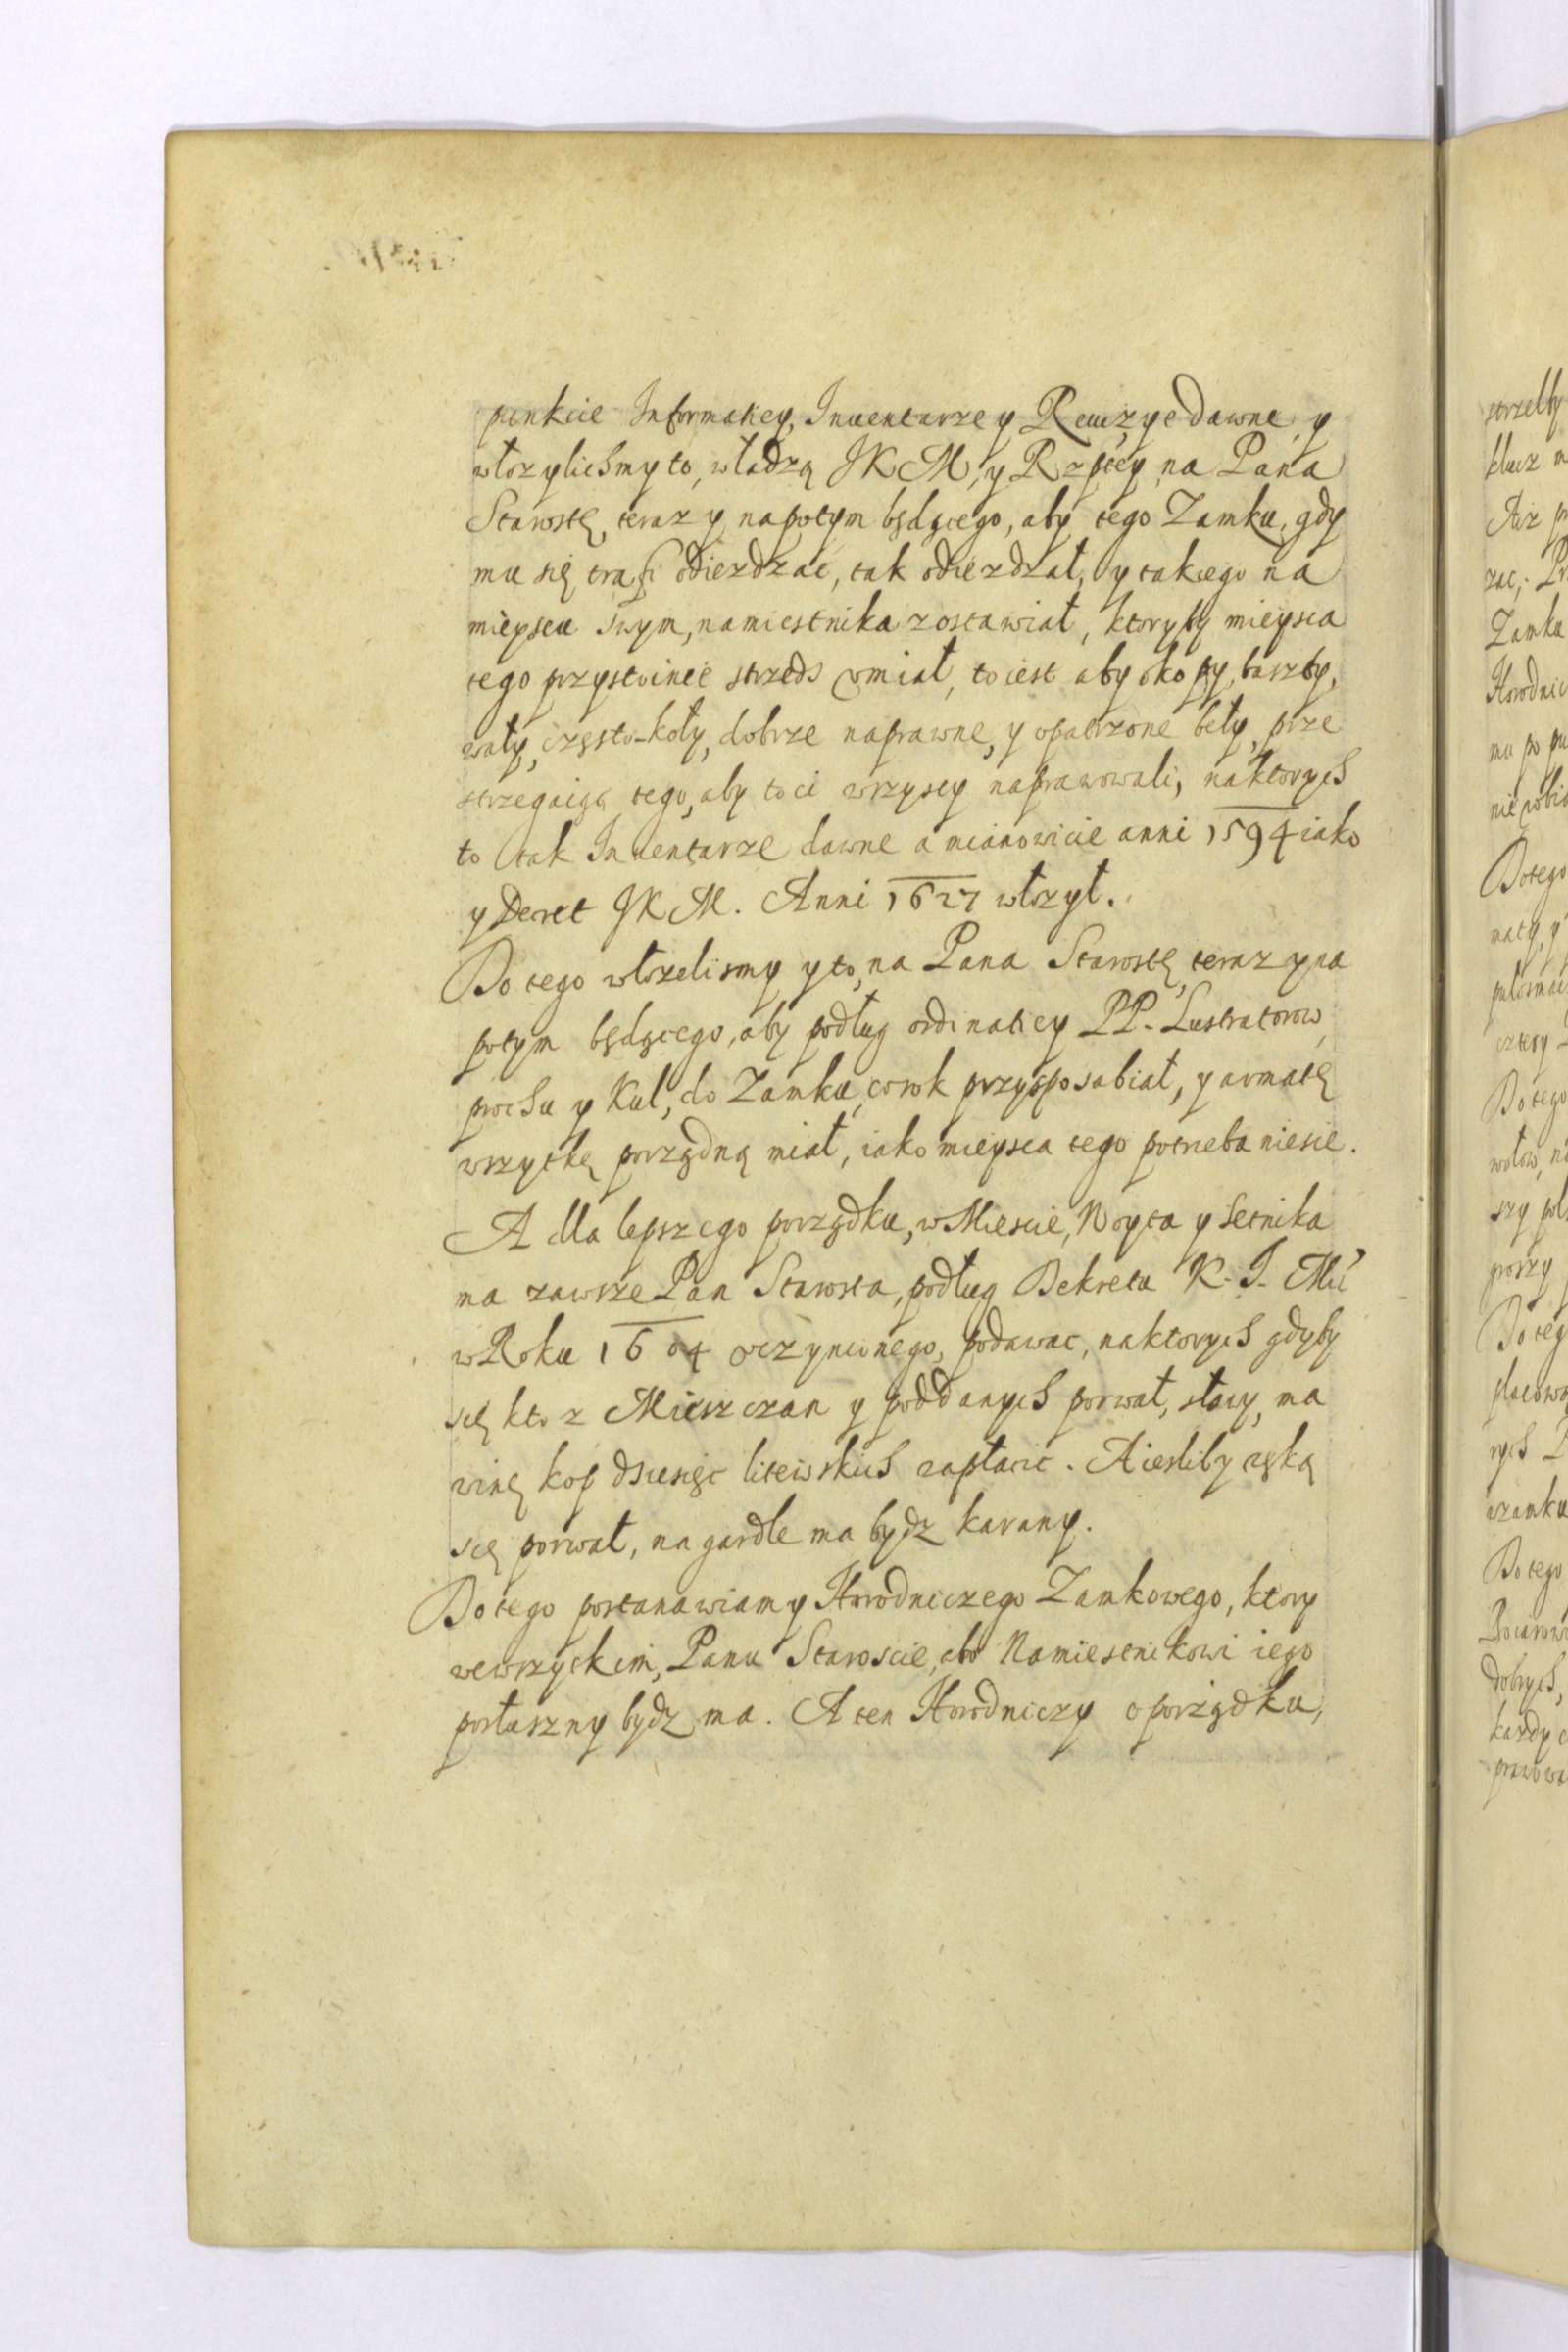 punkcie Informatiey, Inuentarze y Rewizye dawne, y
włozylichmy to, władzą JKM, y Rzptey na Pana
Starostę, teraz y napotym będącego, aby tego Zamku, gdy
mu się trafi odiezdzac, tak odiezdzał, y takiego na
mieyscu swym, namiestnika zostawiał, ktoryby mieysca
tego przystoinie strzedz vmiał, to iest aby okopy, barzby,
wały, często-koły, dobrze naprawne, y opatrzone beły, prze
strzegaiąc tego, aby to ci wszyscy naprawowali, naktorych
to tak Inuentarze dawne a mianowicie anni 1594 iako
y Decret JKM. Anni 1627 włozył.
Do tego włozelismy y to, na Pana Starostę teraz y na
potym będącego, aby podług ordinatiey PP. Lustratorow,
prochu y Kul, do Zamku, co rok przysposabiał, y armatę
wszytkę porządną miał, iako mieysca tego potrzeba niesie.
A dla lepszego porządku, w Miescie, Woyta y Setnika
ma zawsze Pan Starosta, podług Dekretu K. J. Mći
w Roku 1604 vczynionego, podawac, naktorych gdyby
się kto z Mieszczan y poddanych porwał, słowy, ma
winę kop dziesięc liteiwskich zapłacic. A iesliby ręką
się porwał, na gardle ma bydz karany.
Do tego postanawiamy Horodniczego Zamkowego, ktory
wewszytkim, Panu Staroscie, abo Namiestnikowi iego
posłuszny bydz ma. A ten Horodniczy o porządku,
strzelby
klucz
zac,
Zamku
Horodnic
mu po
Do tego
cztery
Do tego
wołow,
szy
Do teg
rych
wzamku
Do tego
dobrych,